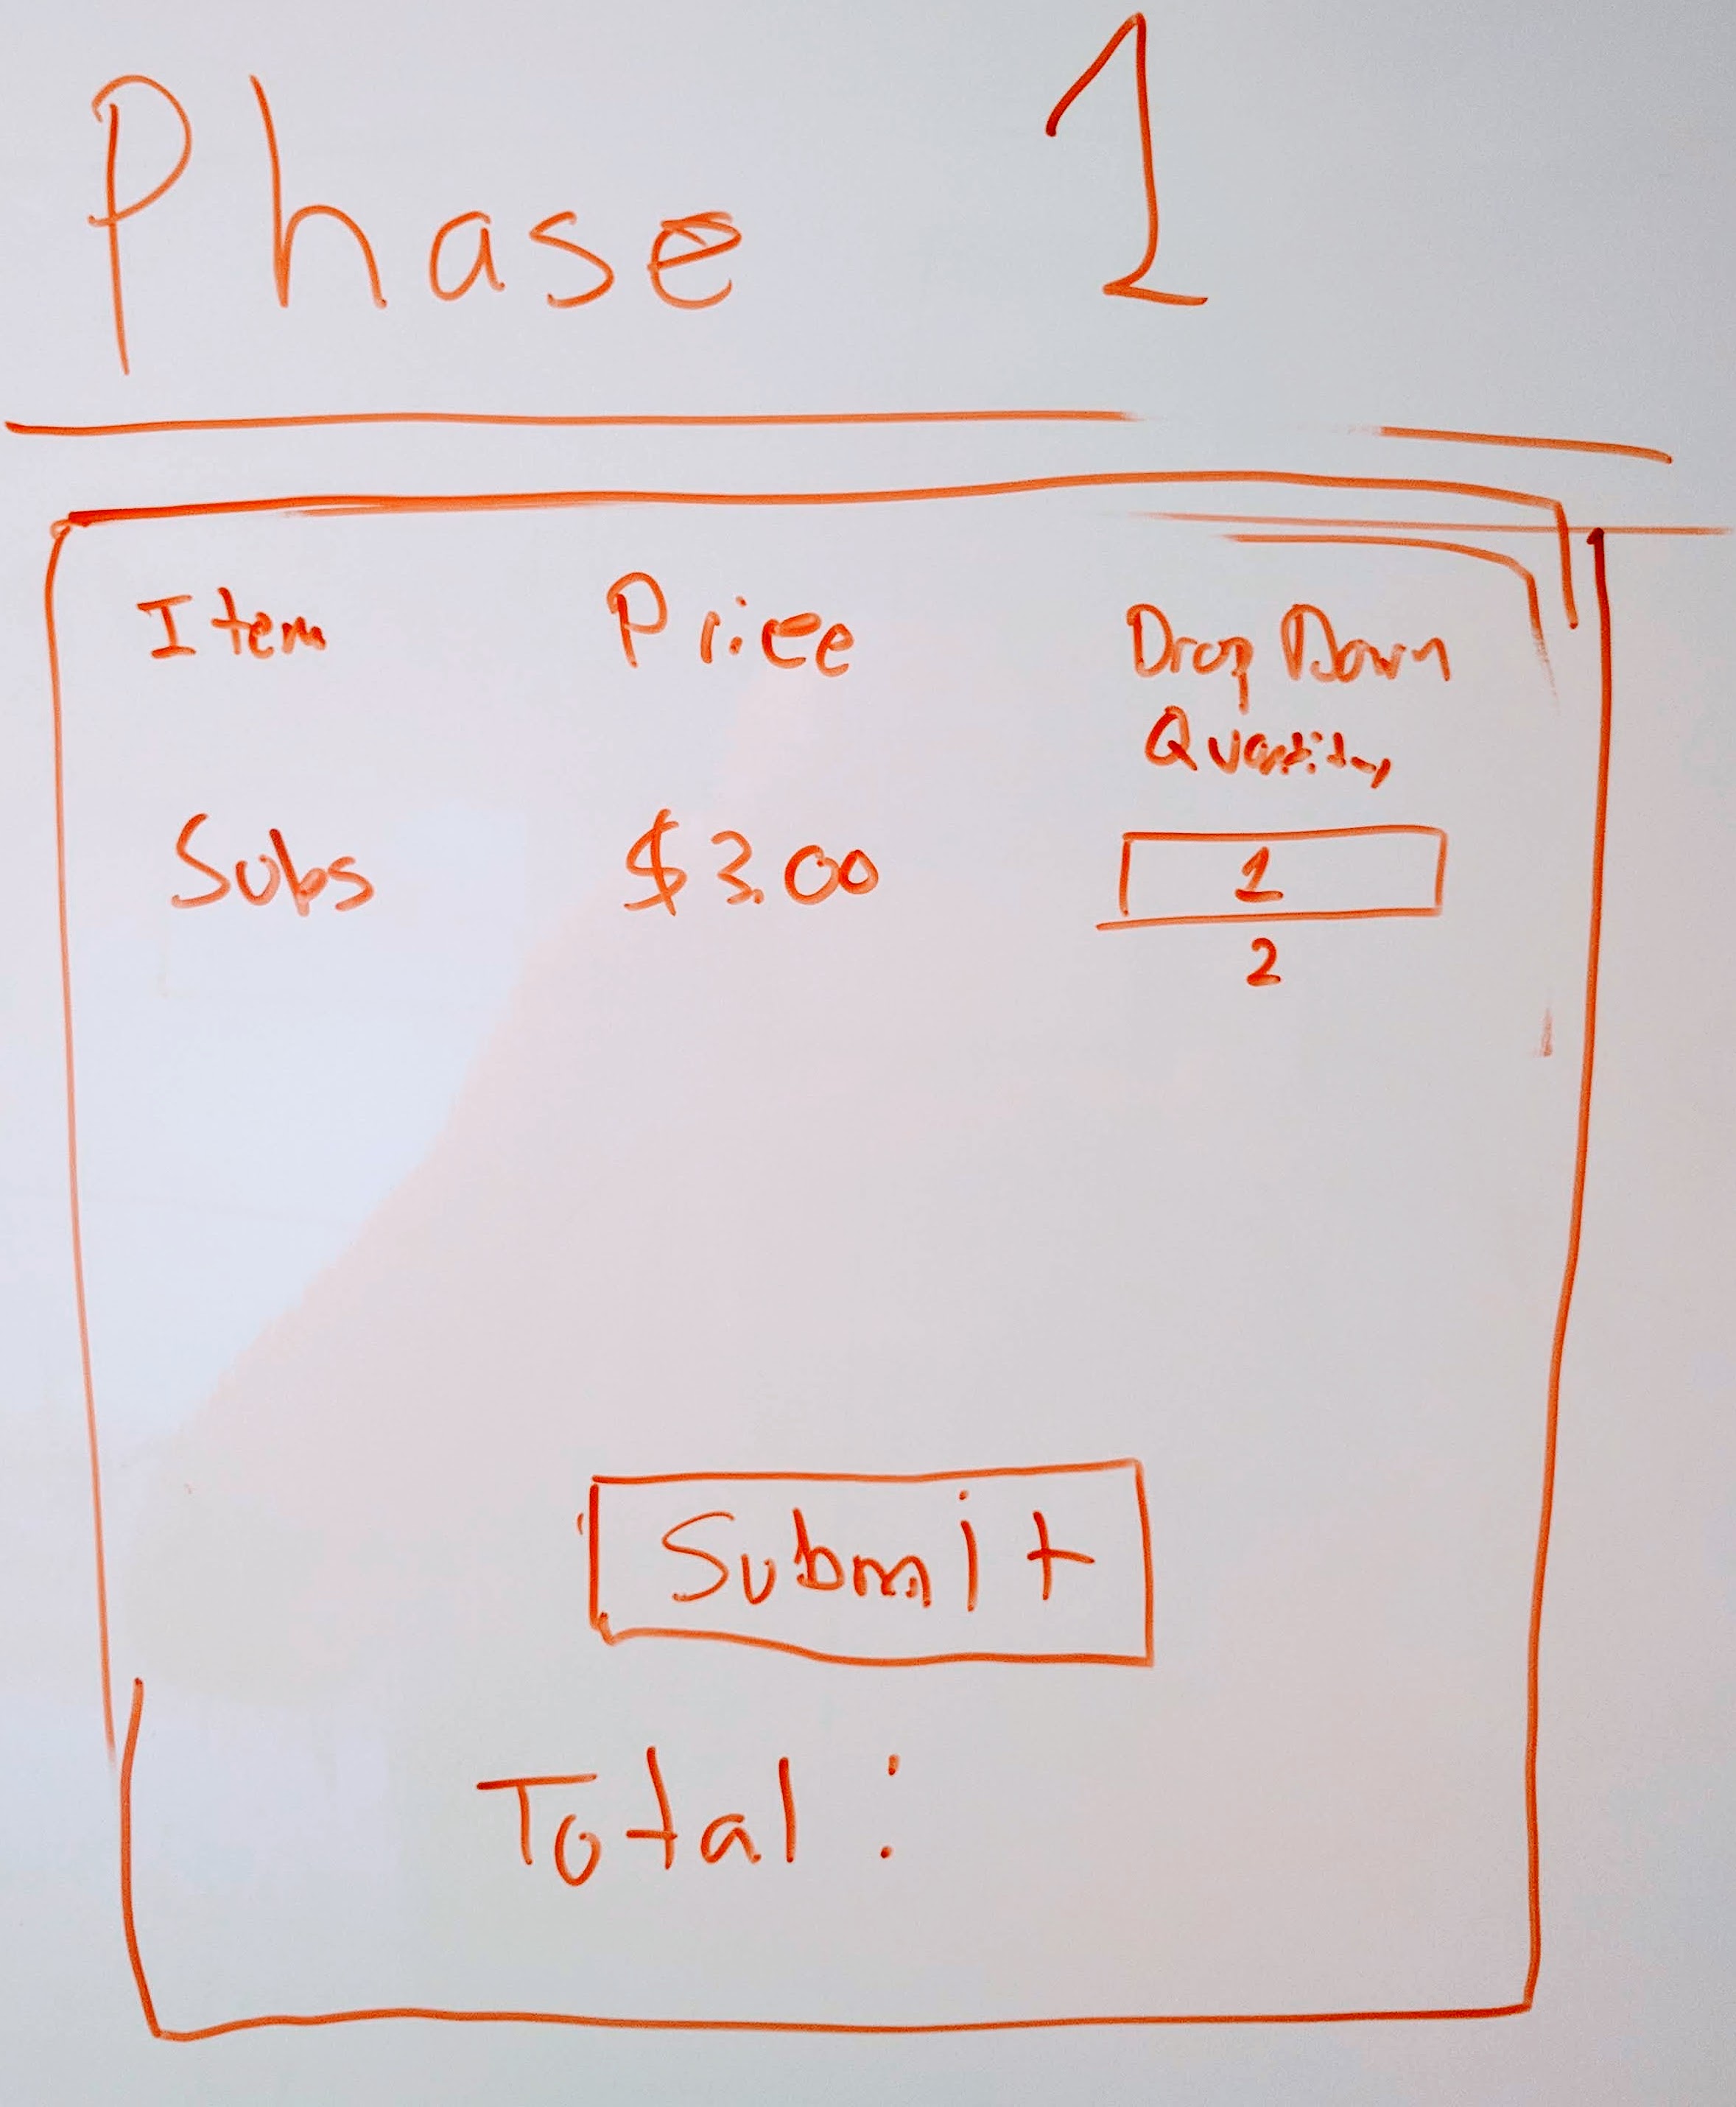 Phase 1
Item Price Drop Down
Quantity
Subs $3.00 1
2
Submit
Total: